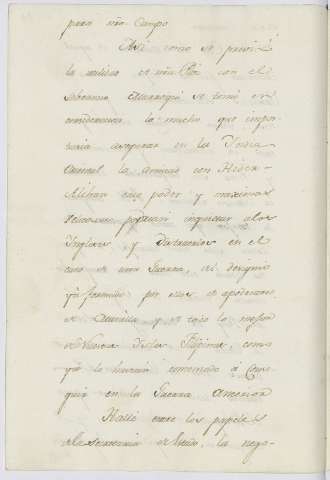 para nro Campo
Asi como se pensó
la
con el
Soberano Marroquí se tomó en
consideracion lo mucho que impor-
taria asegurar en la India
Oriental la armonia con Hider-
Alikan cuyo poder y maximas
podian inquietar a los
Ingleses y distraerlos en el
caso de una Guerra, del designio
ya formado por ellos de apoderarse
de Manila y de todo lo mejor
de nuestras Islas Filipinas, como
ya lo havian comenzado á conse-
guir en la Guerra anterior
Hallé entre los papeles
de la Secretaria de Estado, la nego-